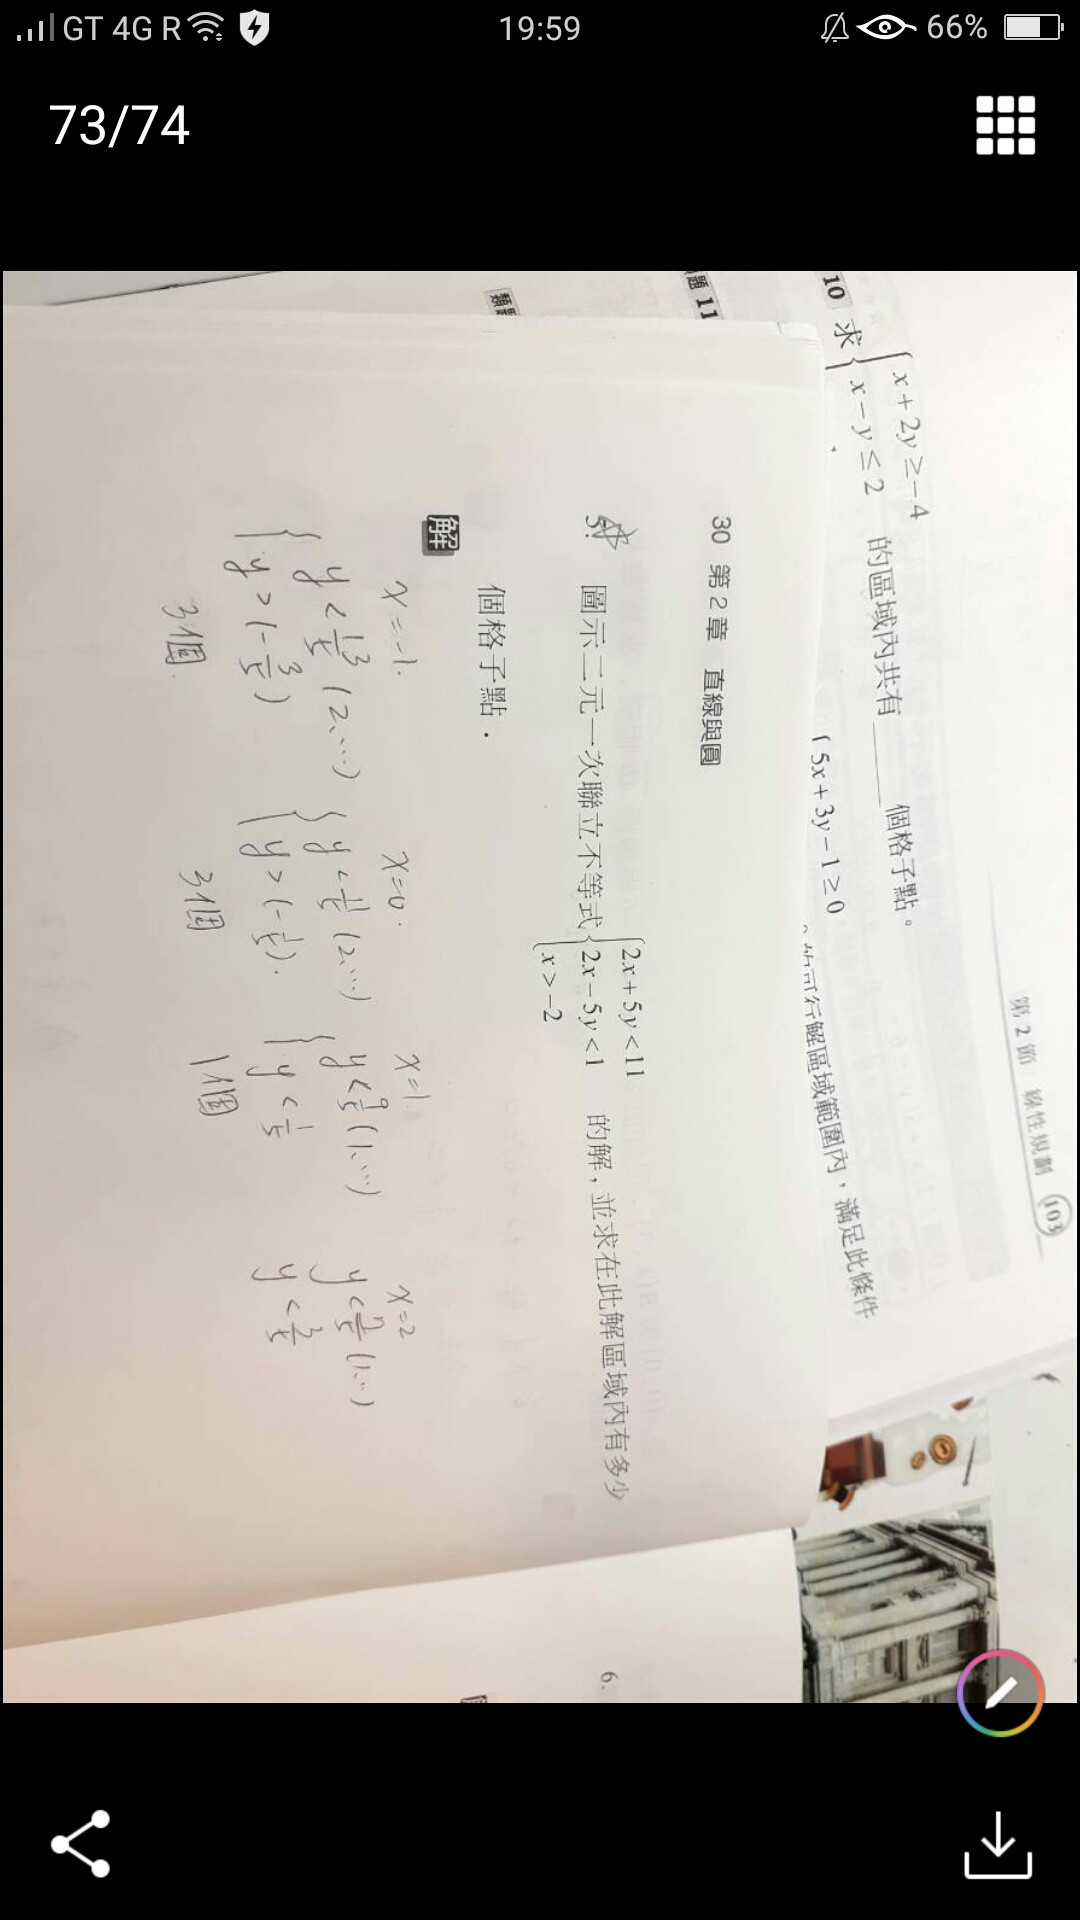 GT 4G R 19:59 66%
73/74
第2節 線性規劃 103
10 求{x+2y≥-4
x-y≤2 的區域內共有____個格子點。
題 11
(5x+3y-1≥0
的可行解區域範圍內，滿足此條件
類題
30 第2章 直線與圓
5. 圖示二元一次聯立不等式{2x+5y<11
2x-5y<1
x>-2 的解，並求在此解區域內有多少
個格子點．
解
x=-1.
y<13/5 (2,…)
y>(-3/5)
3個.
x=0.
y<11/5 (2,…)
y>(-1/5).
3個
x=1.
y<9/5 (1,…)
y<1/5
1個
x=2
y<7/5 (1,…)
y<3/5
6.